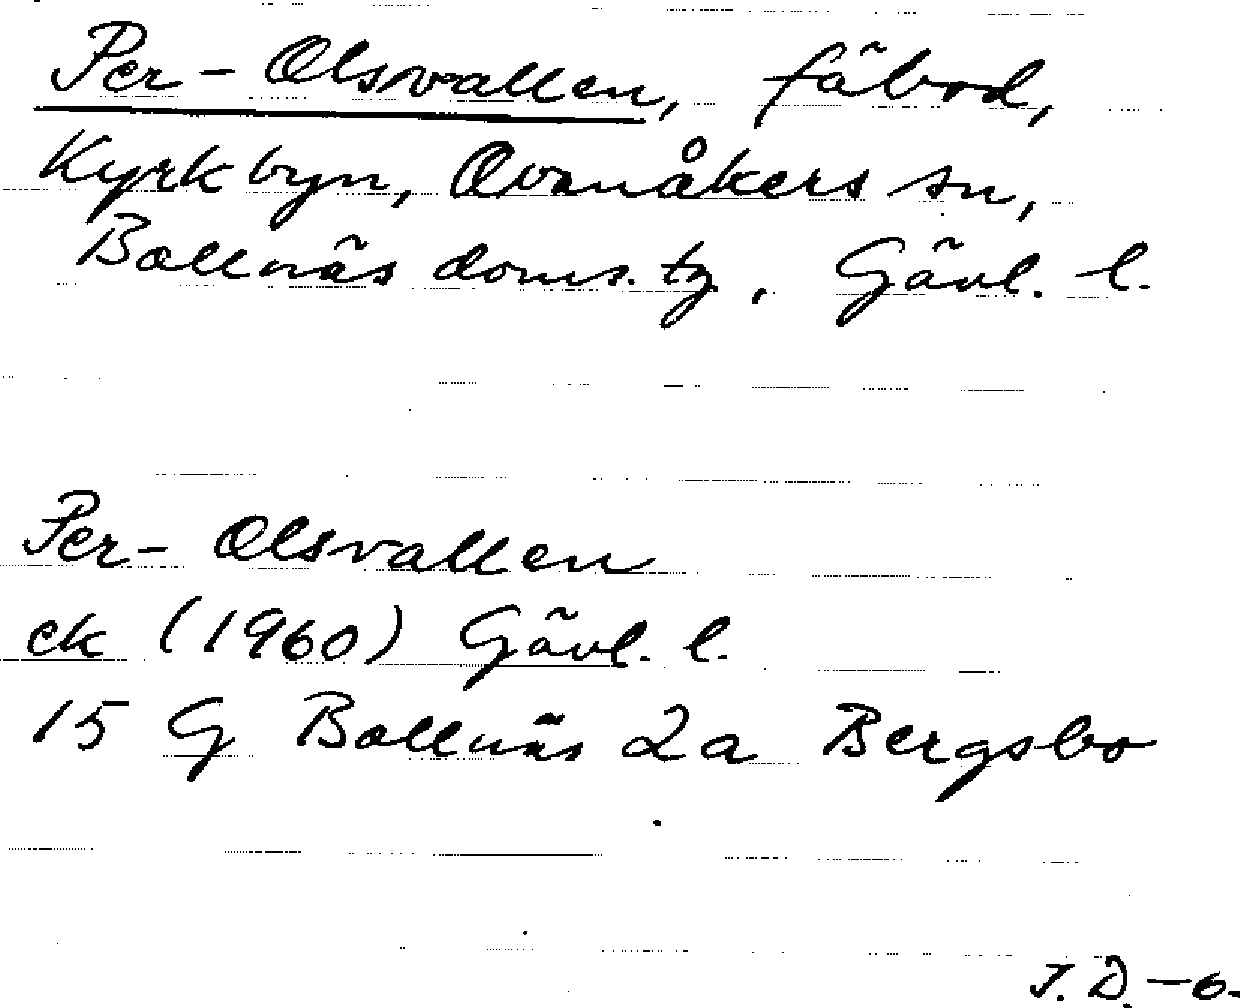 Per-Olsvallen, fäbod,
Kyrkbyn, Ovanåkers sn,
Bollnäs doms. tg, Gävl. l.
Per-Olsvallen
ek (1960) Gävl. l.
15 G Bollnäs 2a Bergsbo
J. D. -6